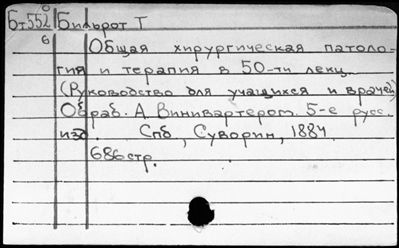 Бт552 Бильрот Т
б
Общая хирургическая патоло-
гия и терапия в 50-ти лекц.
(Руководство для учащихся и врачей)
Обраб. А. Винивартером. 5-е русс.
изд. Спб, Суворин, 1884.
686 стр.